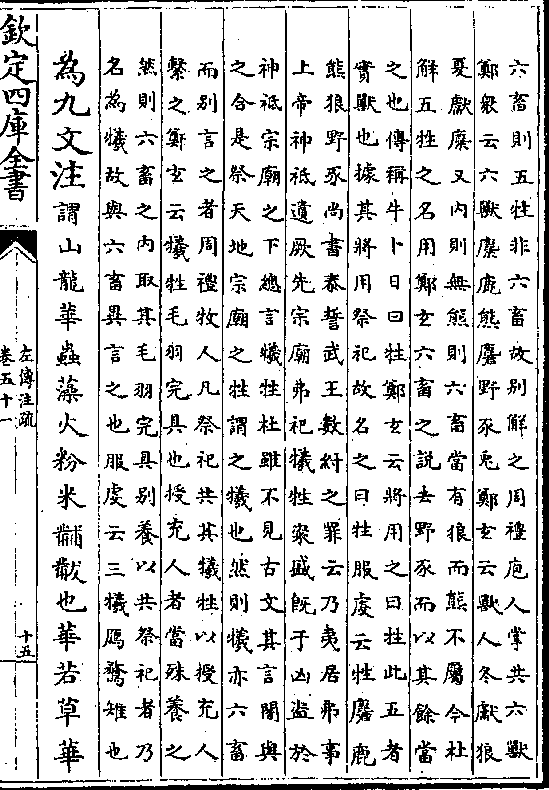 六畜則五牲非六畜故别解之周禮庖人掌共六獸
鄭衆云六獸麋鹿熊麕野豕兎鄭玄云獸人冬獻狼
夏獻麋又内則無熊則六畜當有狼而熊不屬今杜
解五牲之名用鄭玄六畜之説去野豕而以其餘當
之也傳稱牛卜日曰牲鄭玄云將用之曰牲此五者
實獸也據其將用祭祀故名之曰牲服虔云牲麕鹿
熊狼野豕尚書泰誓武王數紂之罪云乃夷居弗事
上帝神祗遺厥先宗廟弗祀犧牲粢盛既于凶盗於
神祗宗廟之下總言犧牲杜雖不見古文其言闇與
之合是祭天地宗廟之牲謂之犧也然則犧亦六畜
而别言之者周禮牧人凡祭祀共其犧牲以授充人
繫之鄭玄云犧牲毛羽完具也授充人者當殊養之
然則六畜之内取其毛羽完具别養以共祭祀者乃
名為犧故與六畜異言之也服虔云三犧鴈鶩雉也
為九文注謂山龍華蟲藻火粉米黼黻也華若草華
欽定四庫全書
左傳注疏
卷五十一
十五